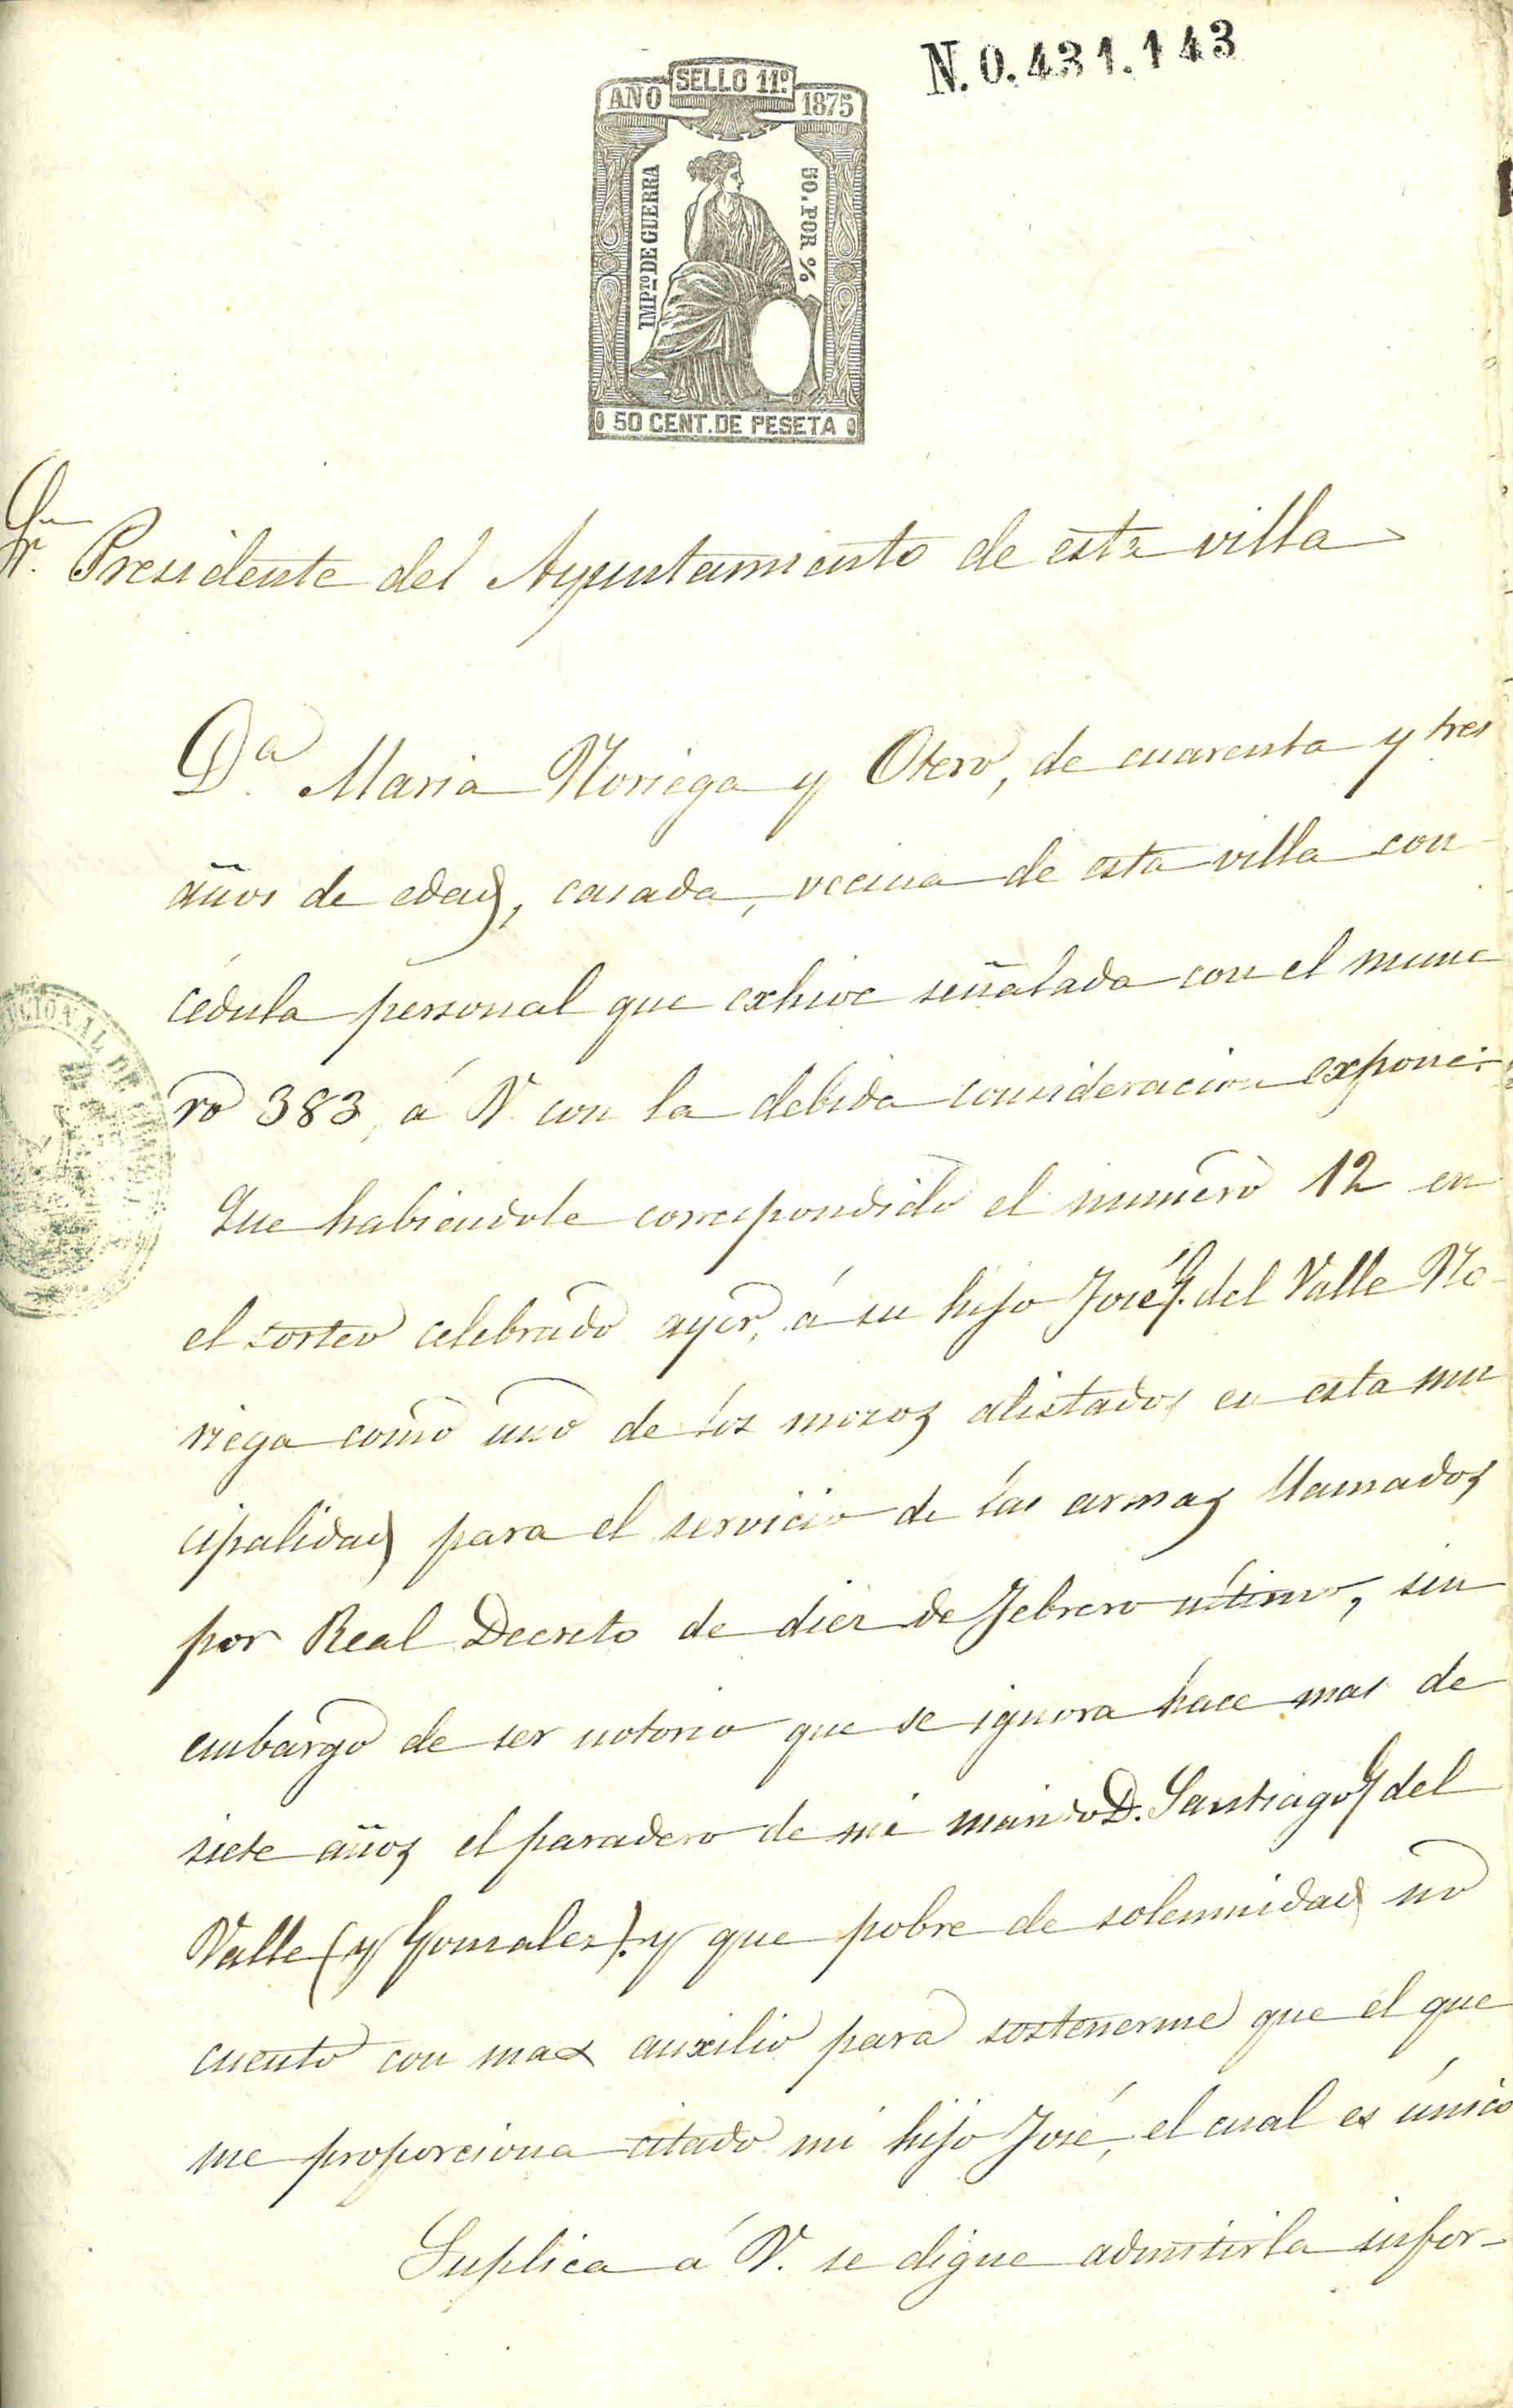 N. 0.431.143
SELLO 11º
AÑO 1875
IMPTO DE GUERRA
50. POR %
50 CENT. DE PESETA
Sr. Presidente del Ayuntamiento de esta villa
Dª. Maria Noriega y Otero, de cuarenta y tres
años de edad, casada, vecina de esta villa con
cédula personal que exhive señalada con el nume
ro 383, á V. con la debida consideracion expone:
Que habiendole correspondido el numero 12 en
el sorteo celebrado ayer, á su hijo José G. del Valle No-
riega como uno de los mozos alistados en esta mu
cipalidad para el servicio de las armas llamados
por Real Decreto de diez de Febrero ultimo, sin
embargo de ser notorio que se ignora hace mas de
siete años el paradero de mi marido D. Santiago G del
Valle (y Gonzalez). y que pobre de solemnidad no
cuento con mas auxilio para sostenerme que el que
me proporciona citado mi hijo José, el cual es único
Suplica á V. se digne admitirla infor-
CIONAL DE